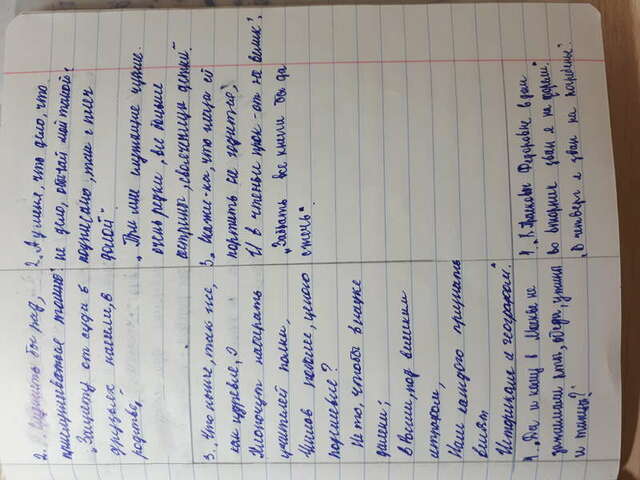 2. „Служить бы рад,
прислуживаться тошно“
„Защиту от суда в
друзьях нашли, в
родстве“
2. „А у меня, что дело, что
не дело, обычай мой такой:
подписано, так с плеч
долой“
„При мне служащие чужие
очень редки, все больше
сестрины, свояченицы детки“
3. „Что нынче, так же,
как издревле,
Хлопочут набирать
учителей полки,
Числом поболее, ценою
подешевле?
Не то, чтобы в науке
далеки;
В России, под великим
штрафом,
Нам каждого признать
велят
Историком и географом“
3. „Скажи-ка, что глаза ей
портить не годится,
И в чтеньи прок-от не велик“
„Забрать все книги бы да
сжечь“
4. „Да и кому в Москве не
зажимали рты, обеды, ужины
и танцы?“
4. „К Прасковье Федоровне в дом
во вторник зван я на форели“
„В четверг я зван на погребенье“